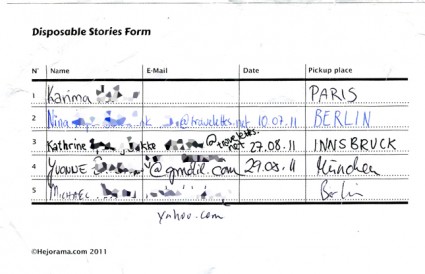 Disposable Stories Form
N° Name E-Mail Date Pickup place
1 Karima PARIS
2 Nina @traveletts.net 10.07.11 BERLIN
3 Kathrine @traveletts.net 27.08.11 INNSBRUCK
4 YVONNE @gmail.com 29.08.11 München
5 MICHAEL Berlin
yahoo.com
©Hejorama.com 2011